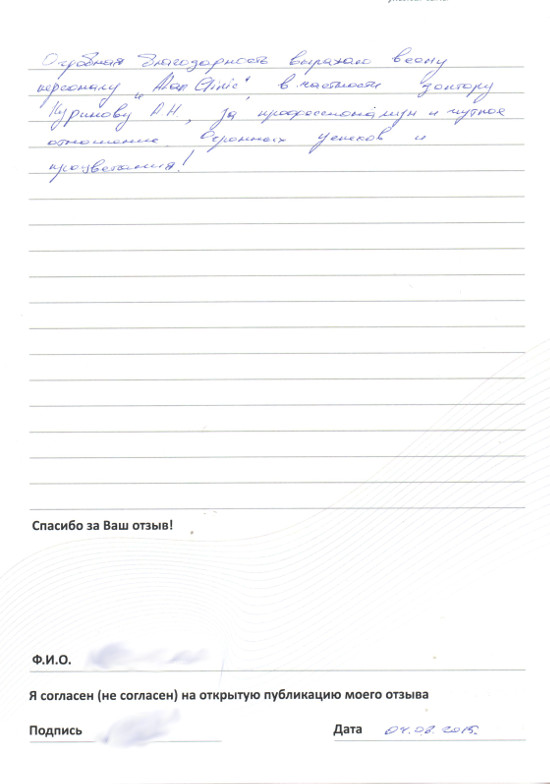 Огромная благодарность выражаю всему
персоналу „Alan Clinic", в частности доктору
Куринову А.Н., за профессионализм и чуткое
отношение. Огромных успехов и
процветания!
Спасибо за Ваш отзыв!
Ф.И.О.
Я согласен (не согласен) на открытую публикацию моего отзыва
Подпись
Дата 04.08.2015.